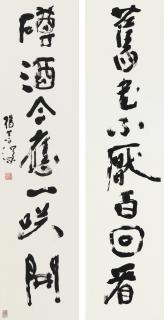 舊書不厭百回看
樽酒今應一笑開